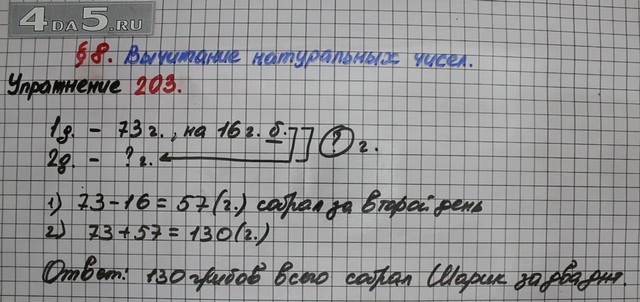 4DA5.RU
§8. Вычитание натуральных чисел.
Упражнение 203.
1д. - 73 г., на 16 г. б.
2д. - ? г. ? г.
1) 73-16=57(г.) собрал за второй день
2) 73+57=130(г.)
Ответ: 130 грибов всего собрал Шарик за два дня.